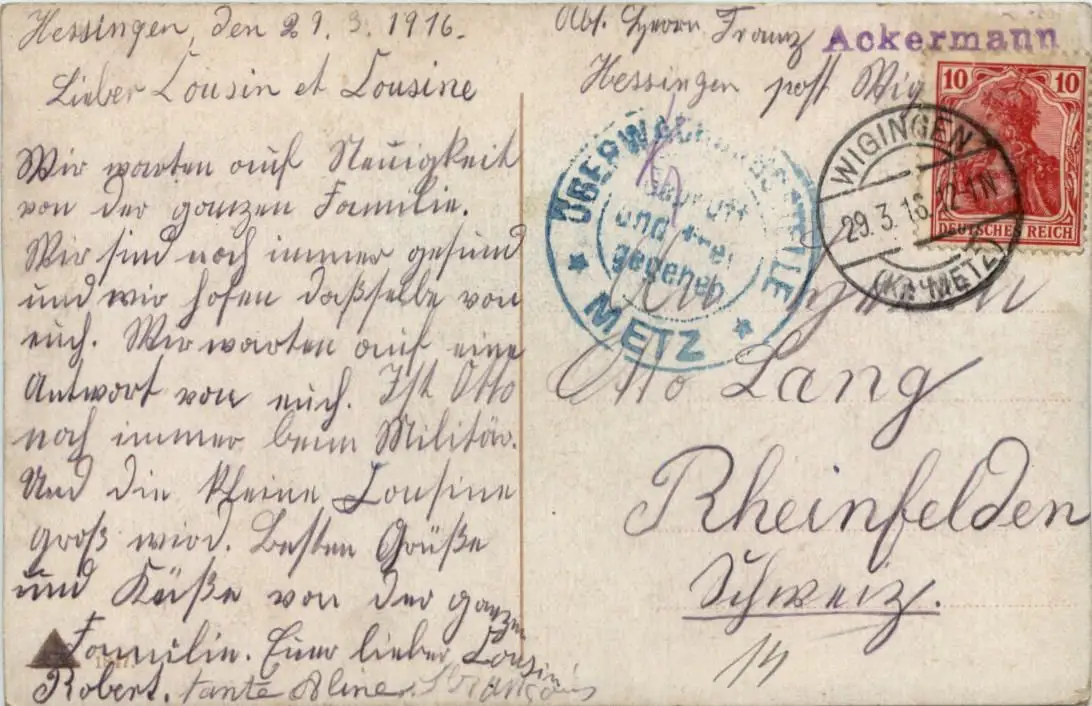 Hessingen, den 29. 3. 1916.
Lieber Cousin et Cousine
Wir warten auf Neuigkeit
von der ganzen Familie.
Wir sind noch immer gesund
und wir hofen daßselbe von
euch. Wir warten auf eine
Antwort von euch. Ist Otto
noch immer beim Militär.
Und die kleine Cousine
groß wird. Besten Grüße
und Küße von der ganzen
Familie. Euer lieber Cousin
Robert. tante Aline.
Abs. Herrn Franz Ackermann
Hessingen post Wig
10 10
DEUTSCHES REICH
WIGINGEN
29. 3. 16. 12-1N
(Kr. METZ)
ÜBERWACHUNGSSTELLE
Geprüft
und frei
gegeben
METZ
Otto Lang
Rheinfelden
Schweiz.
14